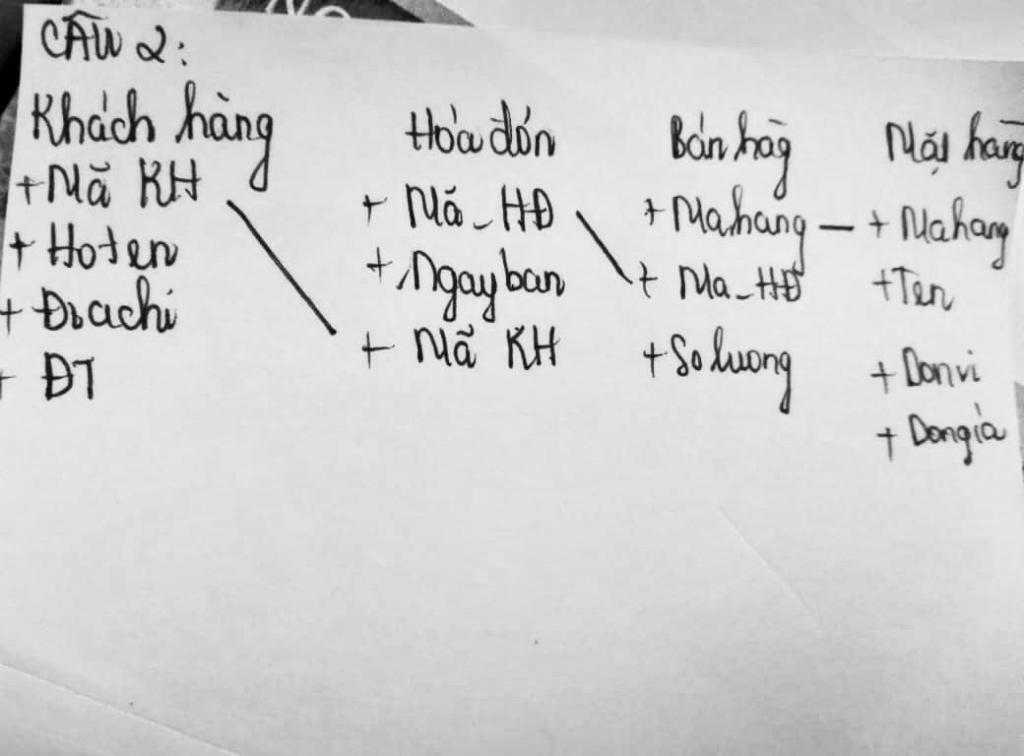 CÂU 2:
Khách hàng
+ Mã KH
+ Hoten
+ Điachi
+ ĐT
Hóa đón
+ Mã_HĐ
+ Ngayban
+ Mã KH
Bán hàg
+ Mahang
+ Ma_HĐ
+ Soluong
Mặt hàng
+ Mahang
+ Ten
+ Donvi
+ Dongia